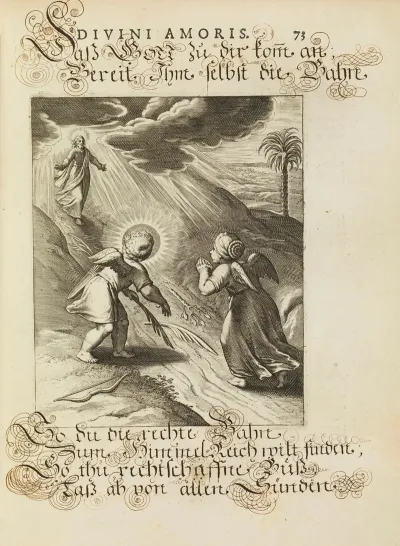 DIVINI AMORIS. 73
Daß GOTT zu dir kom̄t an,
Bereit Ihm selbst die Bahn.
So du die rechte Bahn
Zum Himmel Reich wilt finden,
So thu rechtschaffne Büß
Laß ab von allen Sünden.